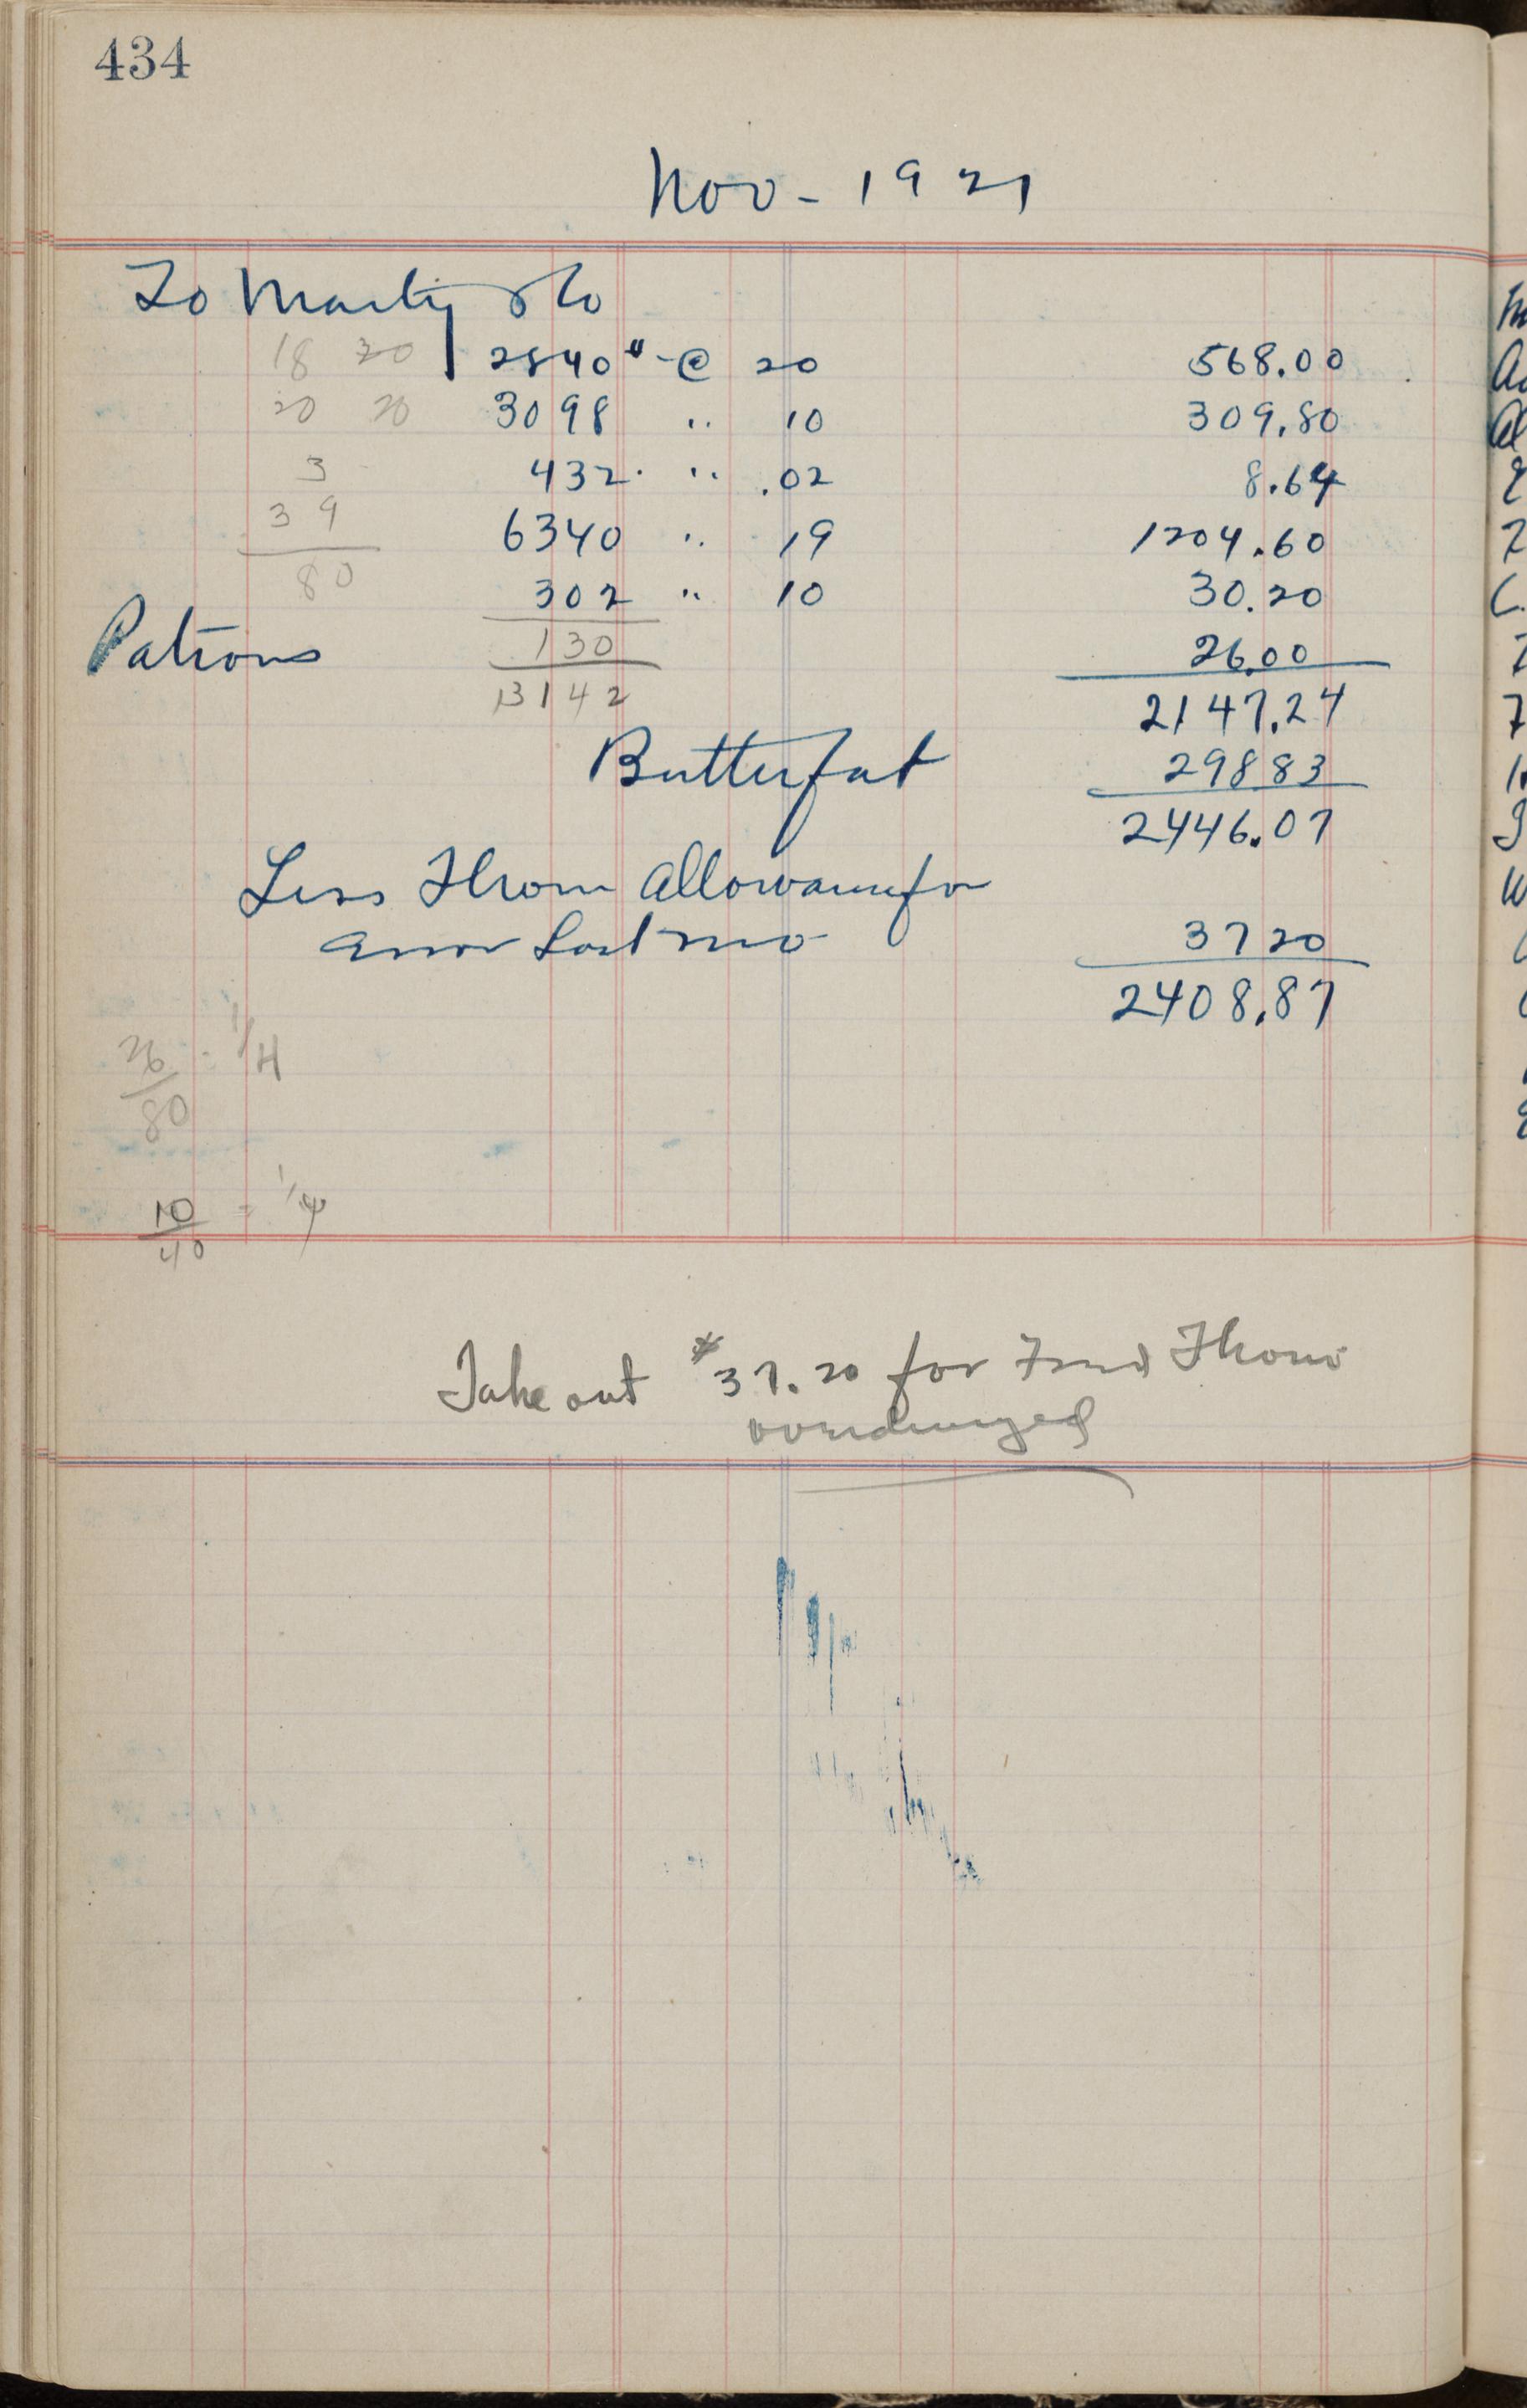 434
Nov - 1921
To Marty & Co
18 20 2840# @ 20 568.00
20 20 3098 " 10 309.80
3 432 " .02 8.64
39 6340 " 19 1204.60
80 302 " 10 30.20
Patrons 130 26.00
13142 2147.24
Butterfat 298 83
2446.07
Less Thom Allowance for
Error Last mo 37 20
2408.87
26/80 = 1/4
10/40 = 1/4
Take out $37.20 for Fred Thom
overcharged